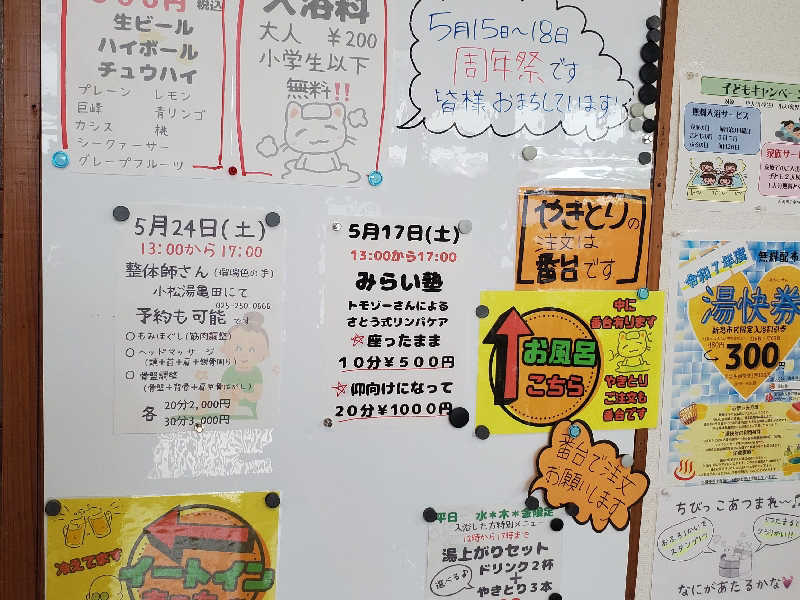 税込
生ビール
ハイボール
チュウハイ
プレーン　レモン
巨峰　青リンゴ
カシス　桃
シークァーサー
グレープフルーツ
入浴料
大人 ￥200
小学生以下
無料!!
5月15日～18日
周年祭です
皆様 おまちしています!
5月24日(土)
13:00から17:00
整体師さん
小松湯亀田にて
025-250-0666
予約も可能です
○もみほぐし(筋肉調整)
○ヘッドマッサージ
○骨盤調整
各 20分2,000円
30分3,000円
5月17日(土)
13:00から17:00
みらい塾
トモゾーさんによる
さとう式リンパケア
☆座ったまま
10分￥500円
☆仰向けになって
20分￥1000円
やきとりの
注文は
番台です
お風呂
こちら
中に
番台有ります
やきとり
ご注文も
番台です
番台で注文
お願いします
冷えてます
イートイン
平日 水*木*金限定
入浴した方特別メニュー
湯上がりセット
ドリンク2杯
+
やきとり3本
選べるよ
子どもキャンペーン
無料入浴サービス
令和7年度
無料配布
湯快券
新潟市内限定入浴割引き
480円
300円
ちびっこあつまれ〜♫
おふろにはいて
スタンプラリ
なにがあたるかな